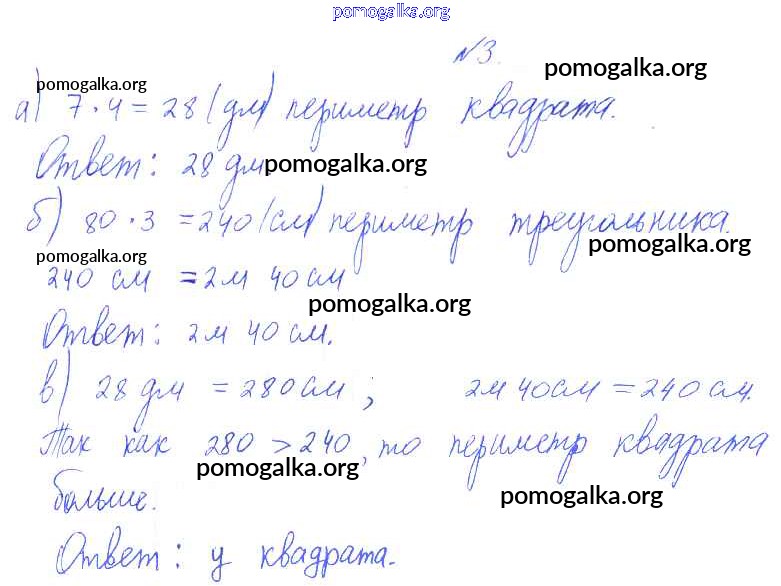 pomogalka.org
№3.
pomogalka.org
pomogalka.org
а) 7 · 4 = 28 (дм) периметр квадрата.
Ответ: 28 дм
pomogalka.org
б) 80 · 3 = 240 (см) периметр треугольника.
pomogalka.org
pomogalka.org
240 см = 2м 40 см
pomogalka.org
Ответ: 2м 40 см.
в) 28 дм = 280 см ; 2м 40см = 240 см.
Так как 280 > 240, то периметр квадрата
pomogalka.org
больше.
pomogalka.org
Ответ: у квадрата.